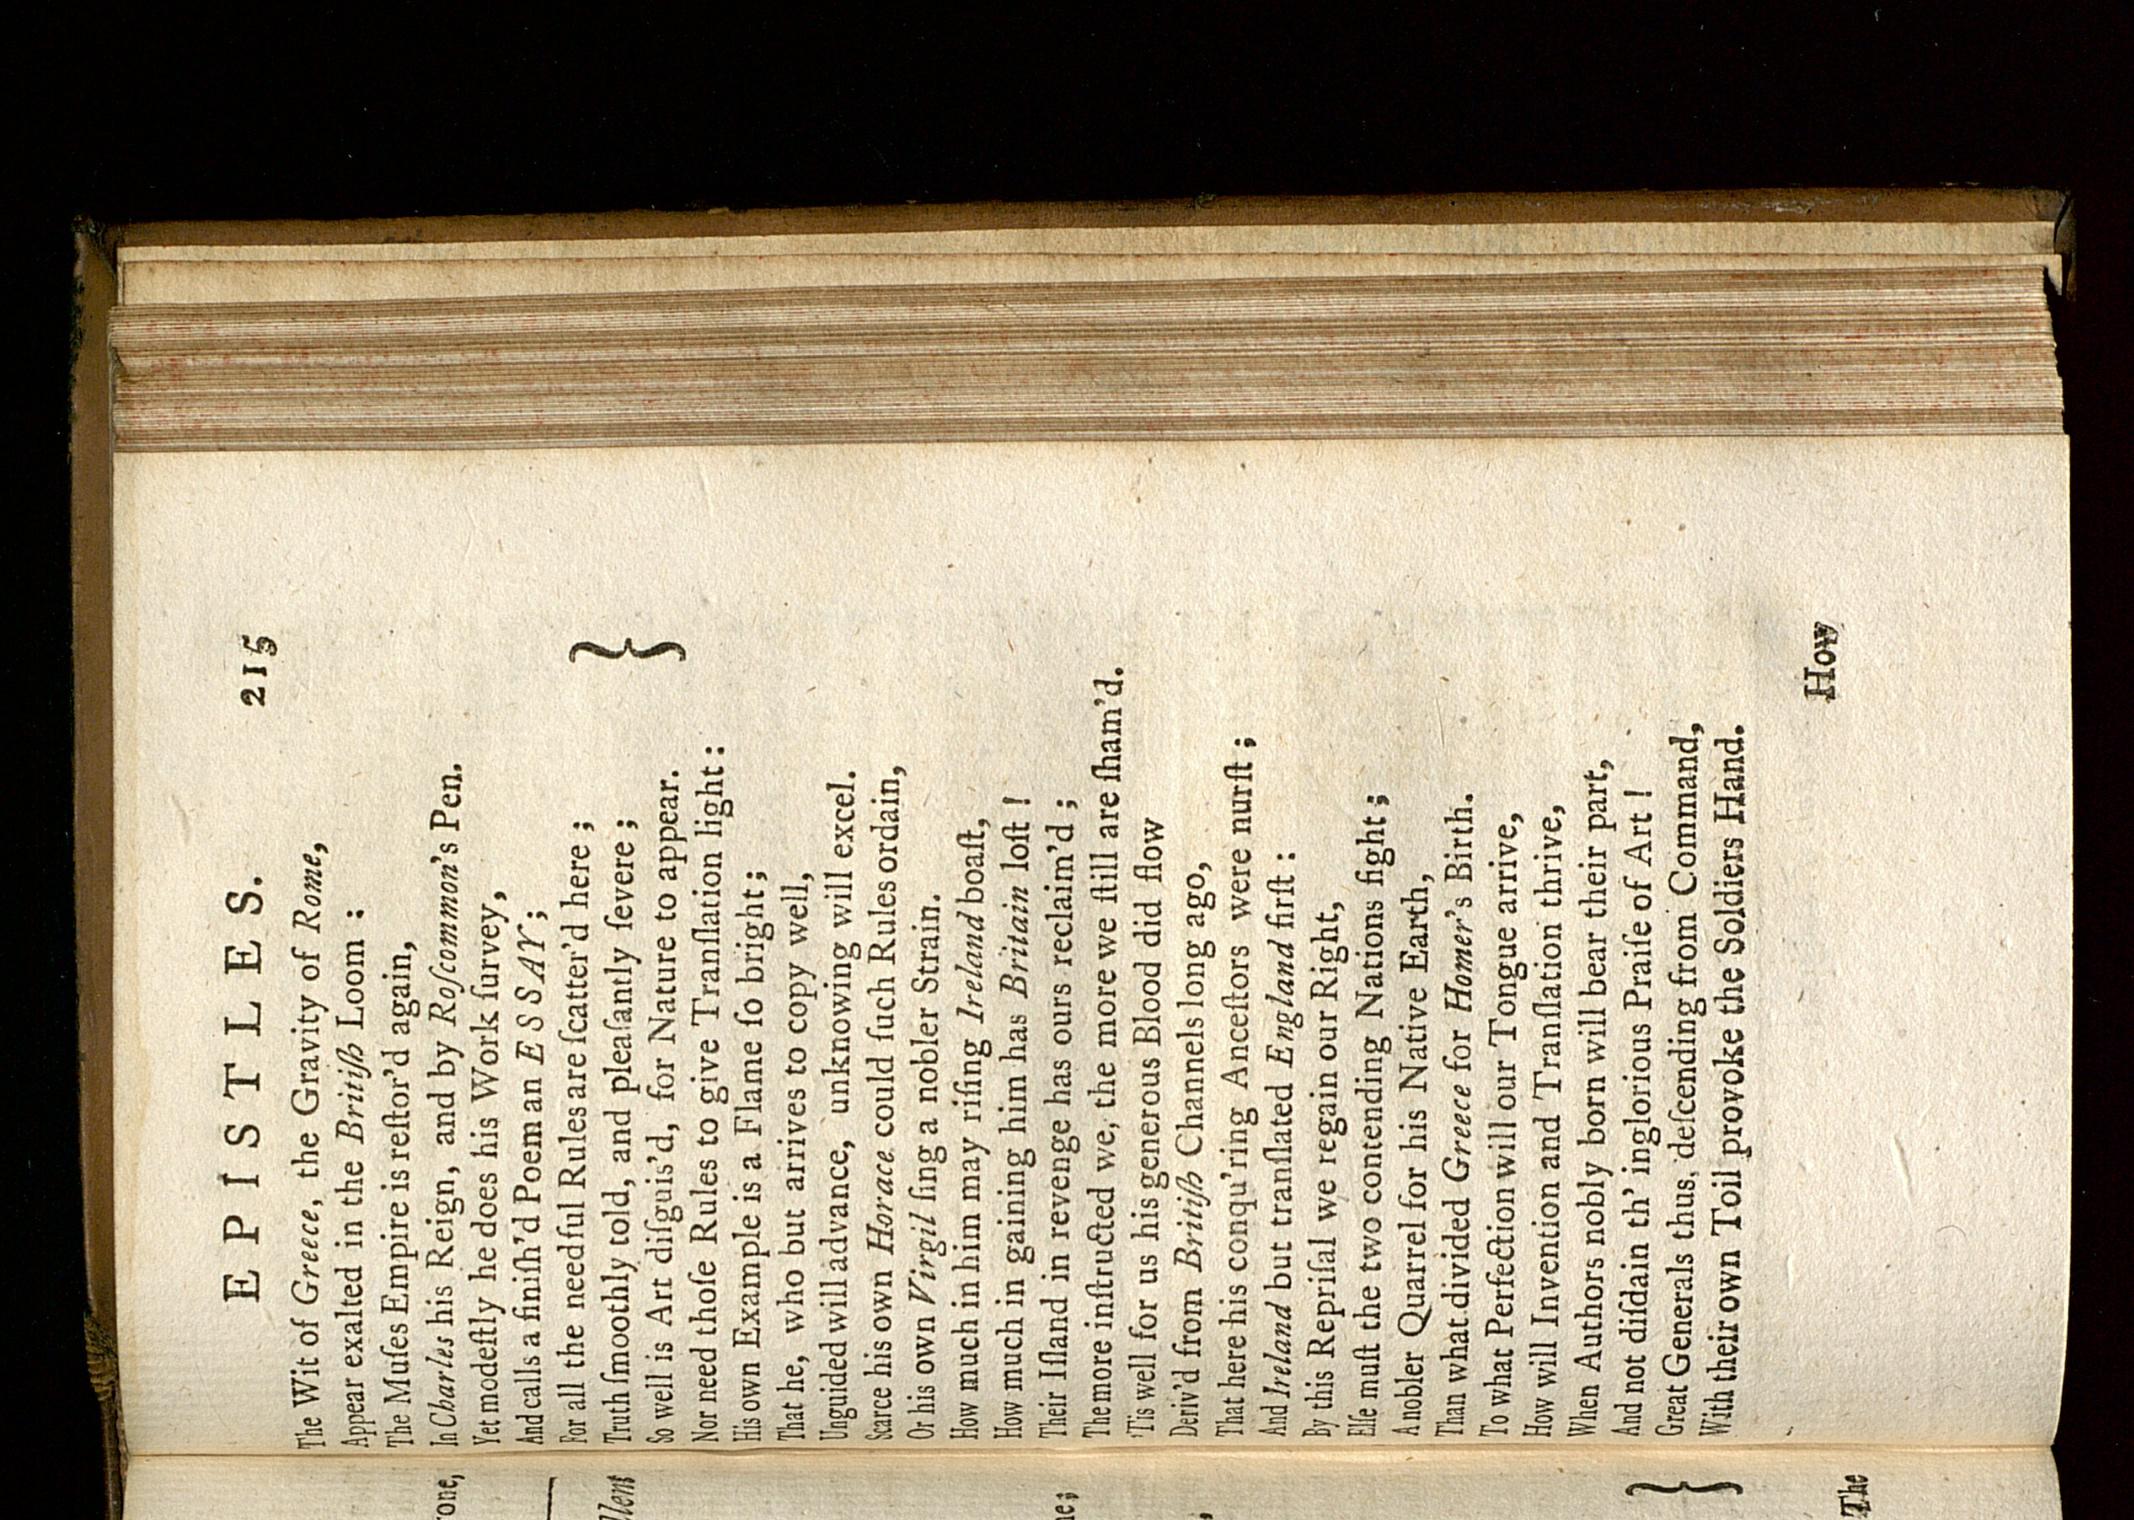 EPISTLES. 215
The Wit of Greece, the Gravity of Rome,
Appear exalted in the Britiſh Loom :
The Muſes Empire is reſtor'd again,
In Charles his Reign, and by Roſcommon's Pen.
Yet modeſtly he does his Work ſurvey,
And calls a finiſh'd Poem an ESSAY;
For all the needful Rules are ſcatter'd here ;
Truth ſmoothly told, and pleaſantly ſevere ;
So well is Art diſguis'd, for Nature to appear.
Nor need thoſe Rules to give Tranſlation light :
His own Example is a Flame ſo bright ;
That he, who but arrives to copy well,
Unguided will advance, unknowing will excel.
Scarce his own Horace could ſuch Rules ordain,
Or his own Virgil ſing a nobler Strain.
How much in him may riſing Ireland boaſt,
How much in gaining him has Britain loſt !
Their Iſland in revenge has ours reclaim'd ;
The more inſtructed we, the more we ſtill are ſham'd.
'Tis well for us his generous Blood did flow
Deriv'd from Britiſh Channels long ago,
That here his conqu'ring Anceſtors were nurſt ;
And Ireland but tranſlated England firſt :
By this Repriſal we regain our Right,
Elſe muſt the two contending Nations fight ;
A nobler Quarrel for his Native Earth,
Than what divided Greece for Homer's Birth.
To what Perfection will our Tongue arrive,
How will Invention and Tranſlation thrive,
When Authors nobly born will bear their part,
And not diſdain th' inglorious Praiſe of Art !
Great Generals thus, deſcending from Command,
With their own Toil provoke the Soldiers Hand.
How
The